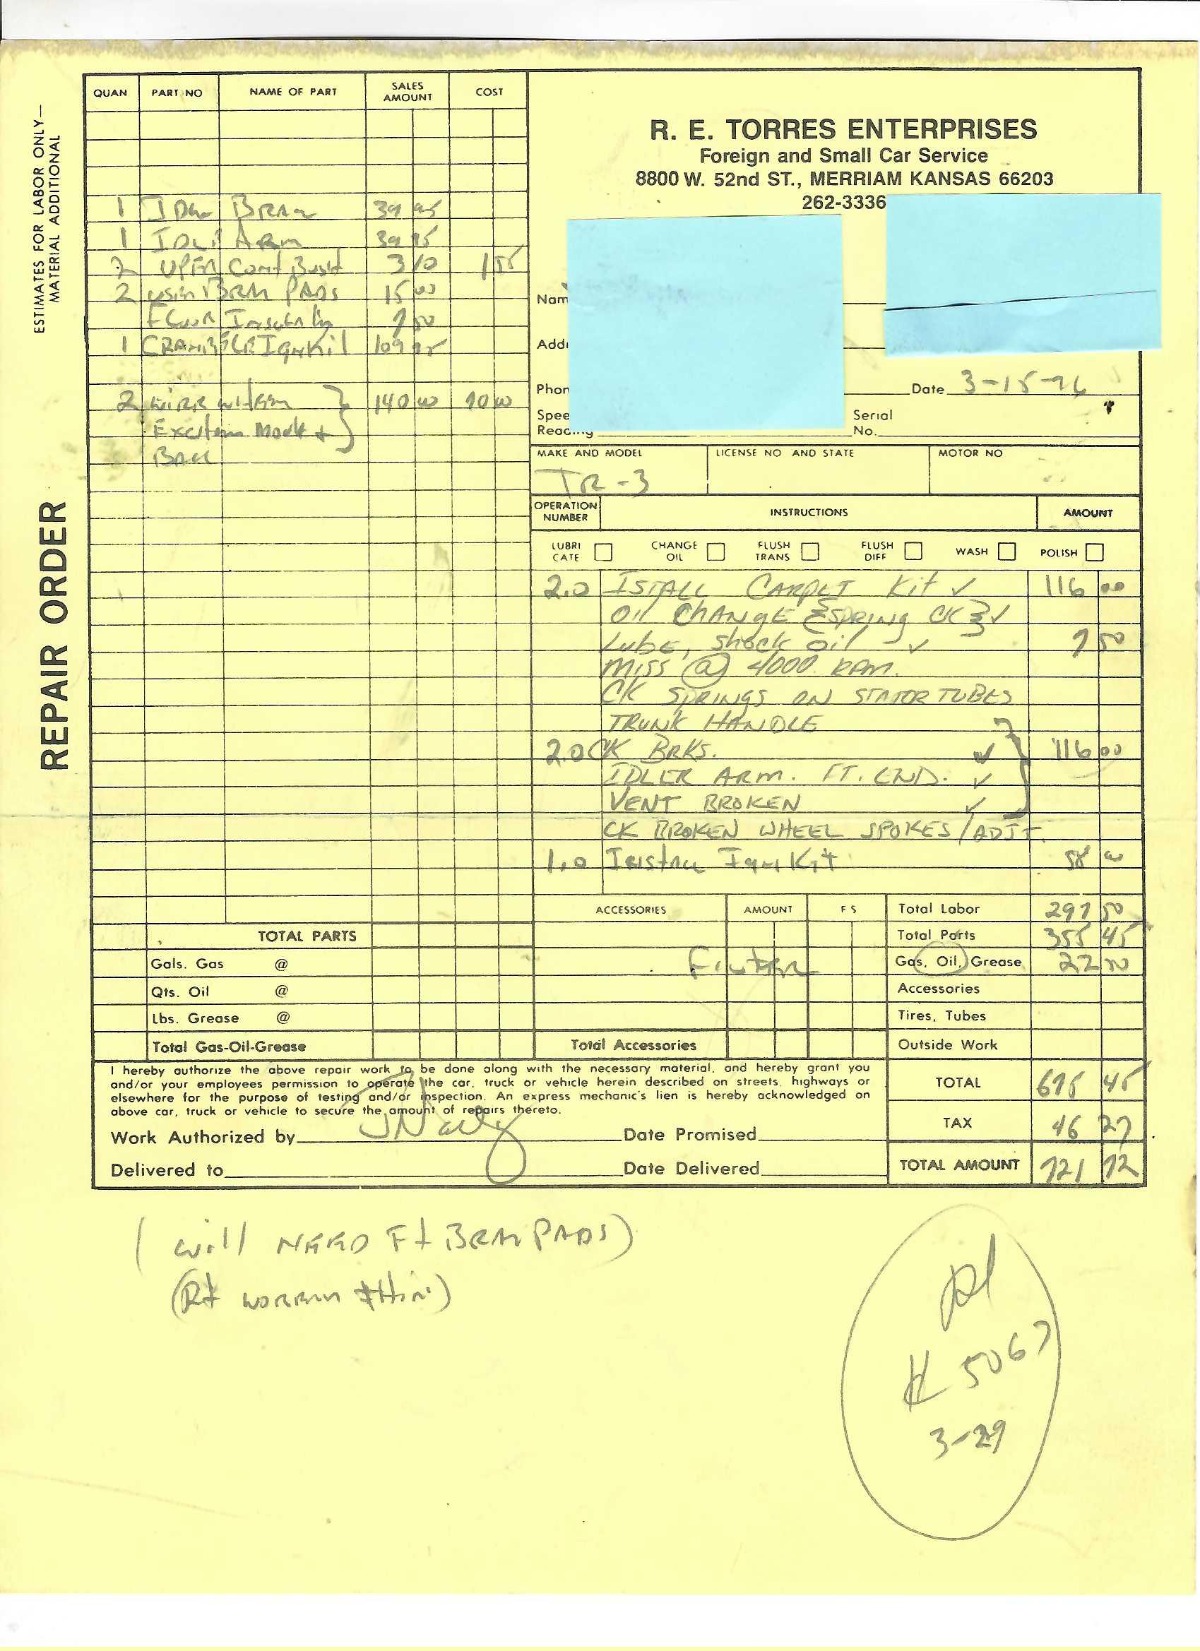 ESTIMATES FOR LABOR ONLY—
MATERIAL ADDITIONAL
REPAIR ORDER
QUAN PART NO NAME OF PART SALES AMOUNT COST
1 39 95
1 IDLR ARM 39 95
2 UPER Cont Bush 3 10 1 55
2 PADS 15 00
FLOOR 7 50
1 109 95
2 WIRE 140 00 70 00
R. E. TORRES ENTERPRISES
Foreign and Small Car Service
8800 W. 52nd ST., MERRIAM KANSAS 66203
262-3336
Nam
Addr
Phon
Date 3-15-96
Spee
Reading
Serial
No.
MAKE AND MODEL LICENSE NO AND STATE MOTOR NO
TR-3
OPERATION NUMBER INSTRUCTIONS AMOUNT
LUBRI CATE CHANGE OIL FLUSH TRANS FLUSH DIFF WASH POLISH
2.0 ISTALL CARPET Kit ✓ 116 00
OIL CHANGE & SPRING CK ✓
LUBE, SHOCK OIL ✓ 7 50
MISS @ 4000 RPM.
CK SPRINGS ON STATOR TUBES
TRUNK HANDLE
2.0 CK BRKS. ✓ 116 00
IDLER ARM. FT. END. ✓
VENT BROKEN ✓
CK BROKEN WHEEL SPOKES/ADJT.
1.0 Kit 58 00
ACCESSORIES AMOUNT F S
Filter
Total Labor 297 50
Total Parts 355 45
Gas, Oil, Grease 22 50
Accessories
Tires, Tubes
Outside Work
TOTAL PARTS
Gals. Gas @
Qts. Oil @
Lbs. Grease @
Total Gas-Oil-Grease
Total Accessories
I hereby authorize the above repair work to be done along with the necessary material, and hereby grant you
and/or your employees permission to operate the car, truck or vehicle herein described on streets, highways or
elsewhere for the purpose of testing and/or inspection. An express mechanic's lien is hereby acknowledged on
above car, truck or vehicle to secure the amount of repairs thereto.
Work Authorized by Date Promised
Delivered to Date Delivered
TOTAL 675 45
TAX 46 27
TOTAL AMOUNT 721 72
(will NEED Ft PADS)
(Rt thin)
pd
K 5067
3-29